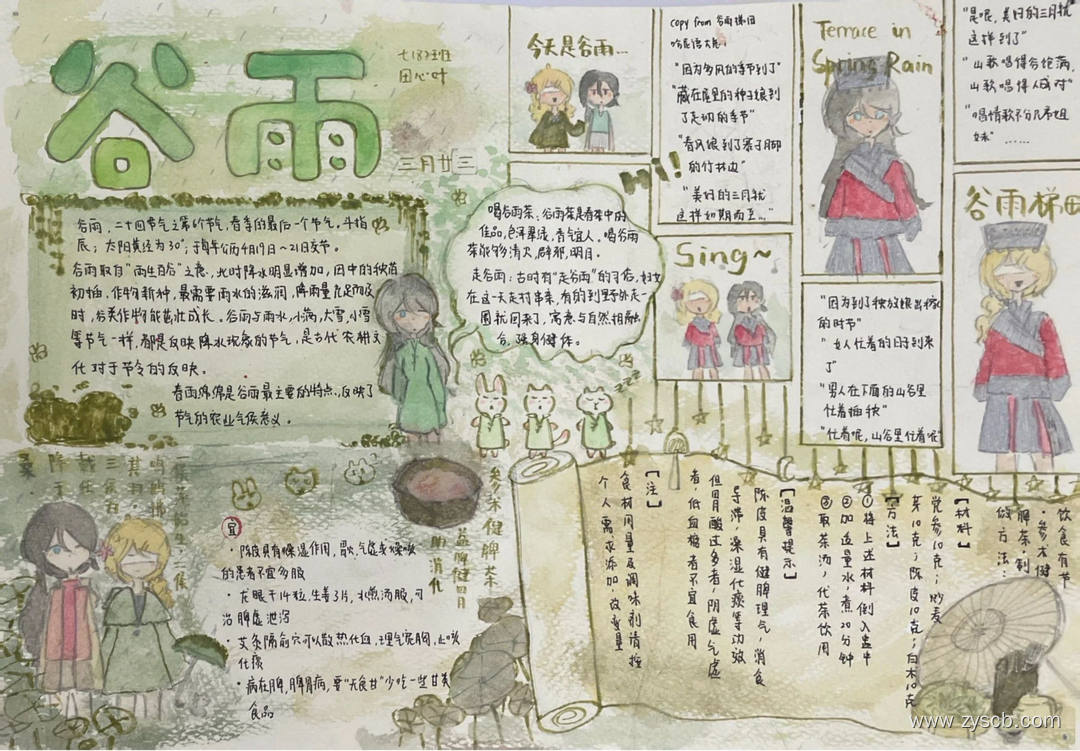 谷雨
七(8)班
田心叶
三月廿三
谷雨，二十四节气之第6个节气，春季的最后一个节气。斗指
辰；太阳黄经为30°；于每年公历4月19日～21日交节。
谷雨取自"雨生百谷"之意，此时降水明显增加，田中的秧苗
初插，作物新种，最需要雨水的滋润，降雨量充足而及
时，谷类作物能茁壮成长。谷雨与雨水、小满、大雪、小雪
等节气一样，都是反映降水现象的节气，是古代农耕文
化对于节令的反映。
春雨绵绵是谷雨最主要的特点，反映了
节气的农业气候意义。
喝谷雨茶，谷雨茶是春茶中的
佳品，色泽翠绿，香气宜人。喝谷雨
茶能够清火，辟邪，明目。
走谷雨：古时有"走谷雨"的习俗，妇女
在这一天走村串亲，有的到野外走一
圈就回来了，寓意与自然相融
合，强身健体。
今天是谷雨...
copy from 谷雨梯田
"因为多风的季节到了"
"藏在屋里的种子娘到
了走动的季节"
"春风娘到了寨子脚
的竹林边"
"美好的三月就
这样如期而至..."
Hi!
Sing~
Terrace in
Spring Rain
"因为到了秧苗娘出嫁
的时节"
"女人忙着的日子到来
了"
"男人在下面的山谷里
忙着插秧"
"忙着呢，山谷里忙着呢"
"是呢，美好的三月就
这样到了"
"山歌唱得谷佗满，
山歌唱得人成对"
"唱情歌不分兄弟姐
妹" ……
谷雨梯田
zzz
宜
·陈皮具有燥湿作用，
的患者不宜多服
·龙眼干14粒，生姜3片，水煎汤服，可
治脾虚泄泻
·艾灸隔俞穴可以散热化血，理气宽胸，止咳
化痰
·病在脾，脾胃病，要"无食甘"少吃一些甘美
食品
参术健脾茶
益脾健四月
助消化
饮食有节
·参术健
脾茶·制
做方法：
【材料】
党参10克；炒麦
芽10克；陈皮10克；白术10克
【方法】
①将上述材料倒入壶中
②加适量水，煮20分钟
③取茶汤，代茶饮用
【温馨提示】
陈皮具有健脾理气，消食
导滞，燥湿化痰等功效
但因月酸过多者，阴虚气虚
者，低血糖者不宜食用
【注】
食材用量及调味剂请按
个人需求添加，改变量
www.zyscb.com